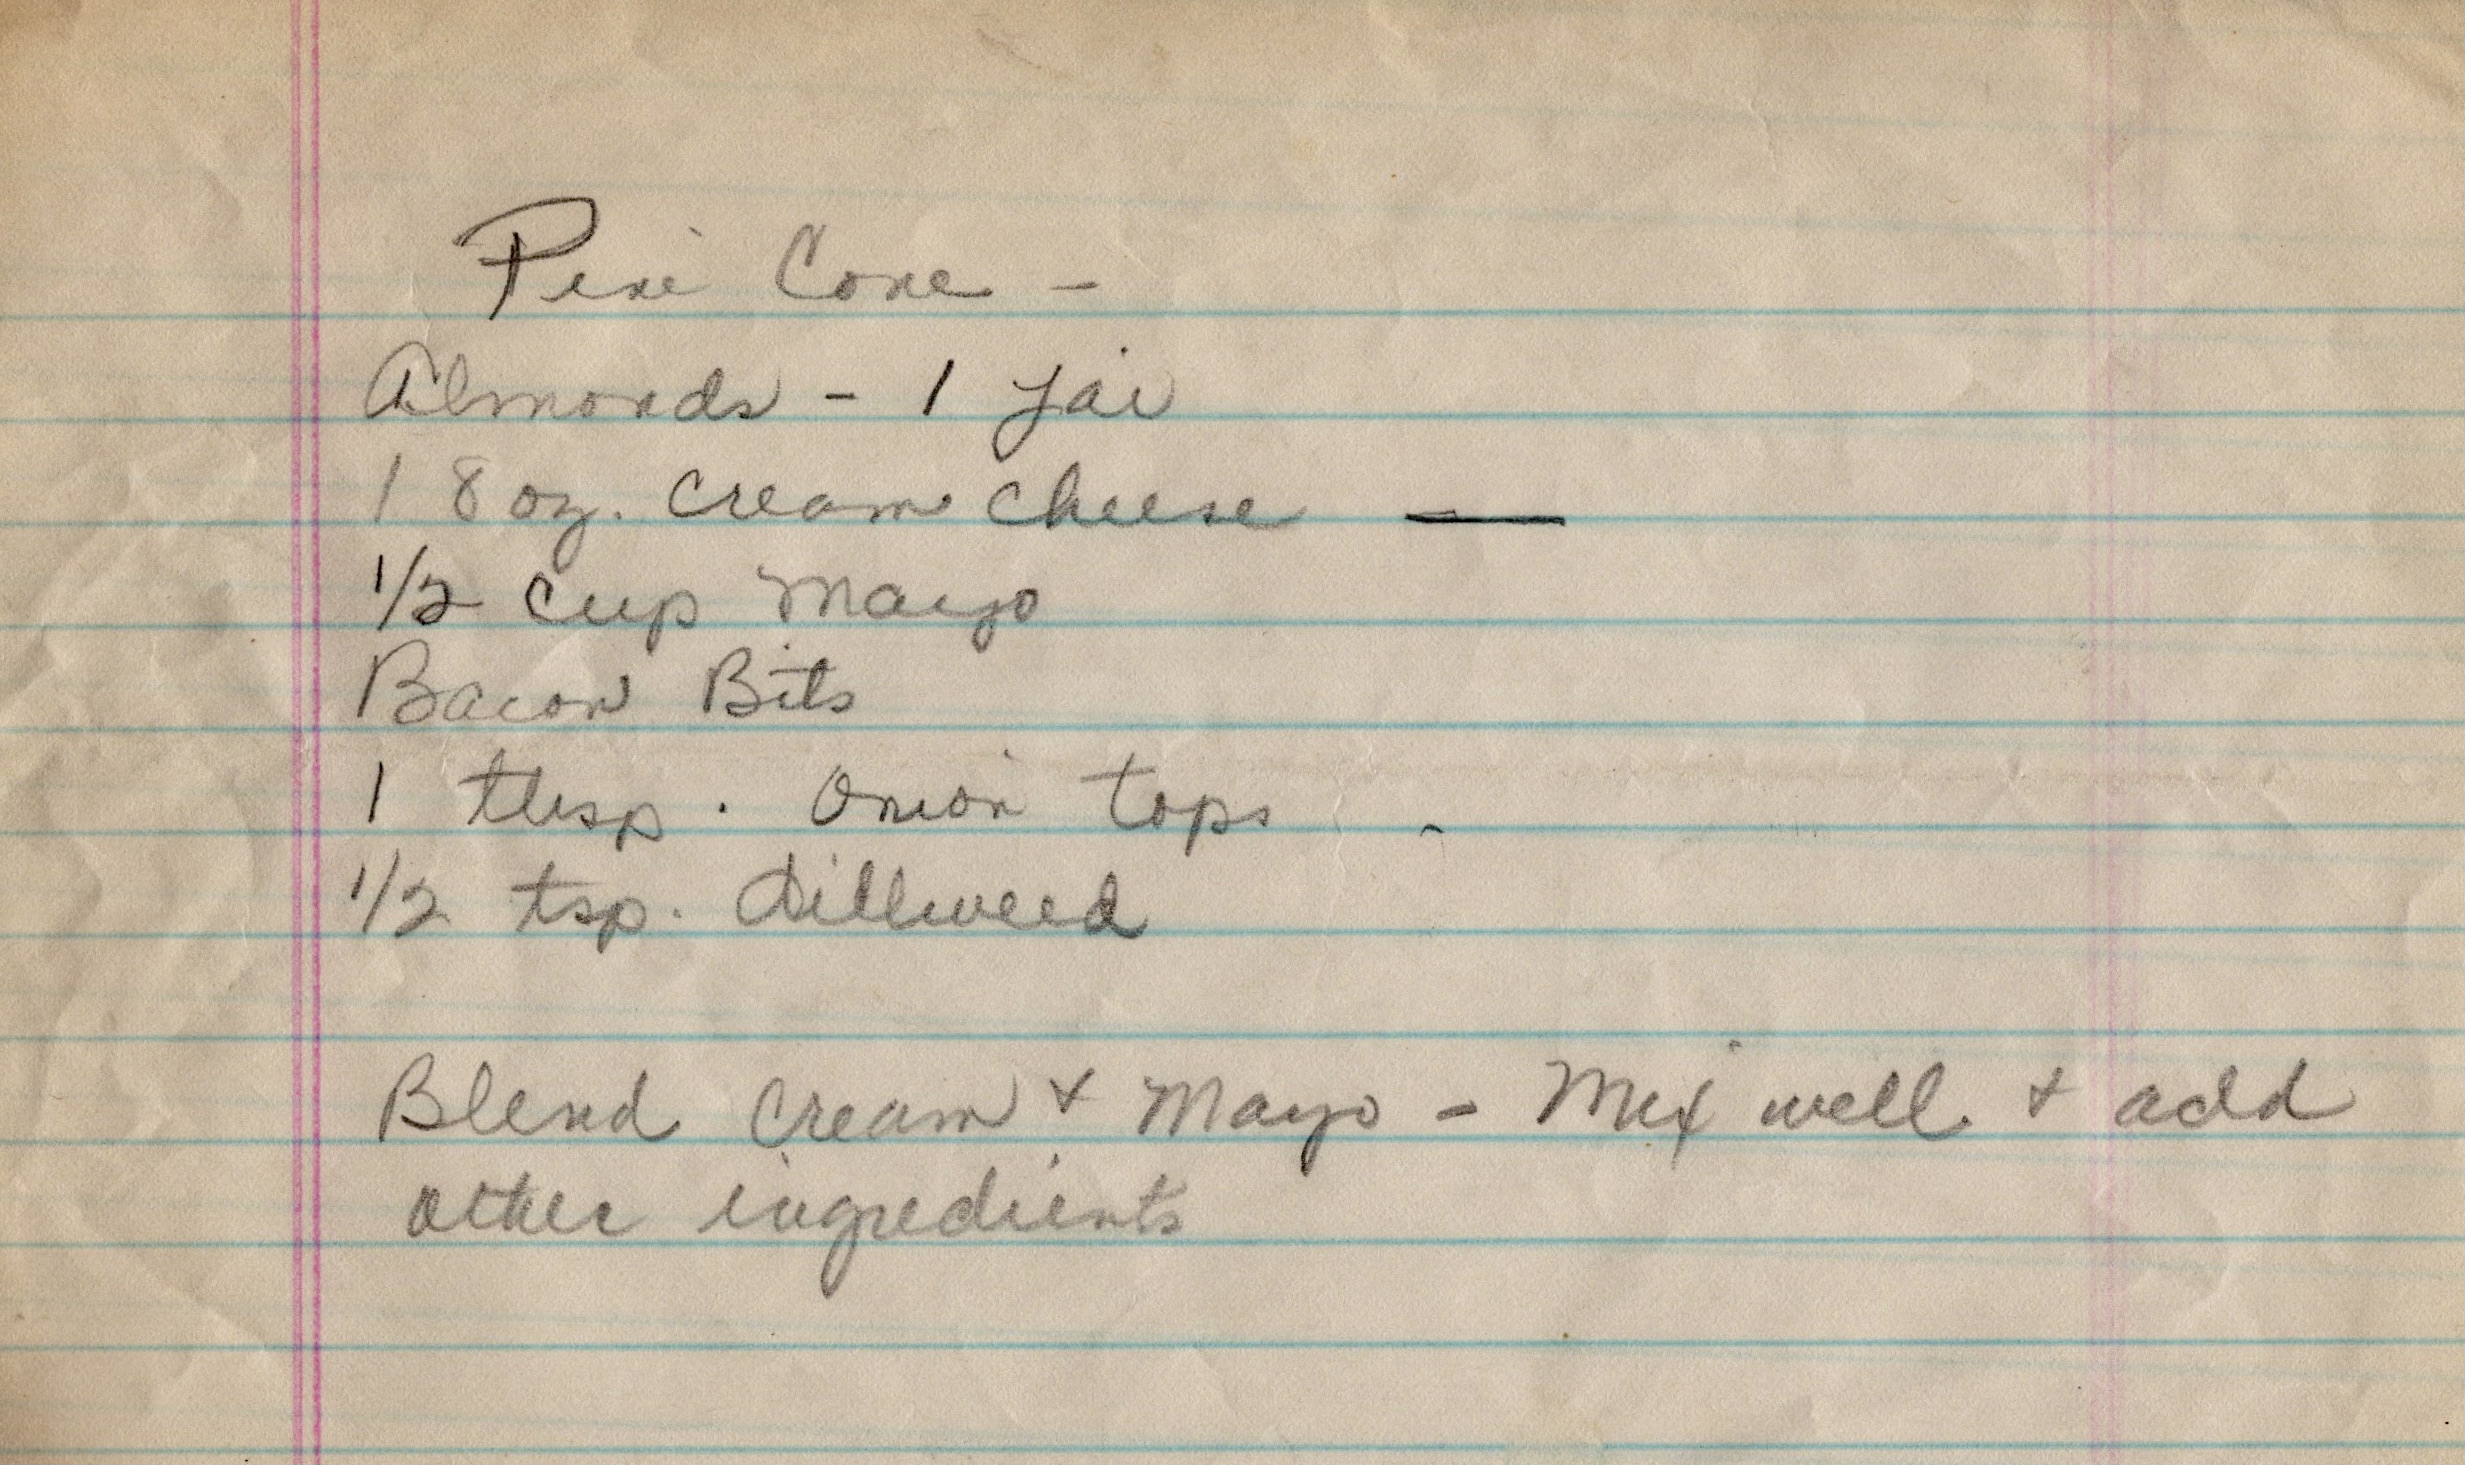 Pine Cone -
Almonds - 1 jar
1 8 oz. cream cheese —
1/2 cup Mayo
Bacon Bits
1 tbsp. onion tops
1/2 tsp. dillweed
Blend cream + Mayo - Mix well + add
other ingredients